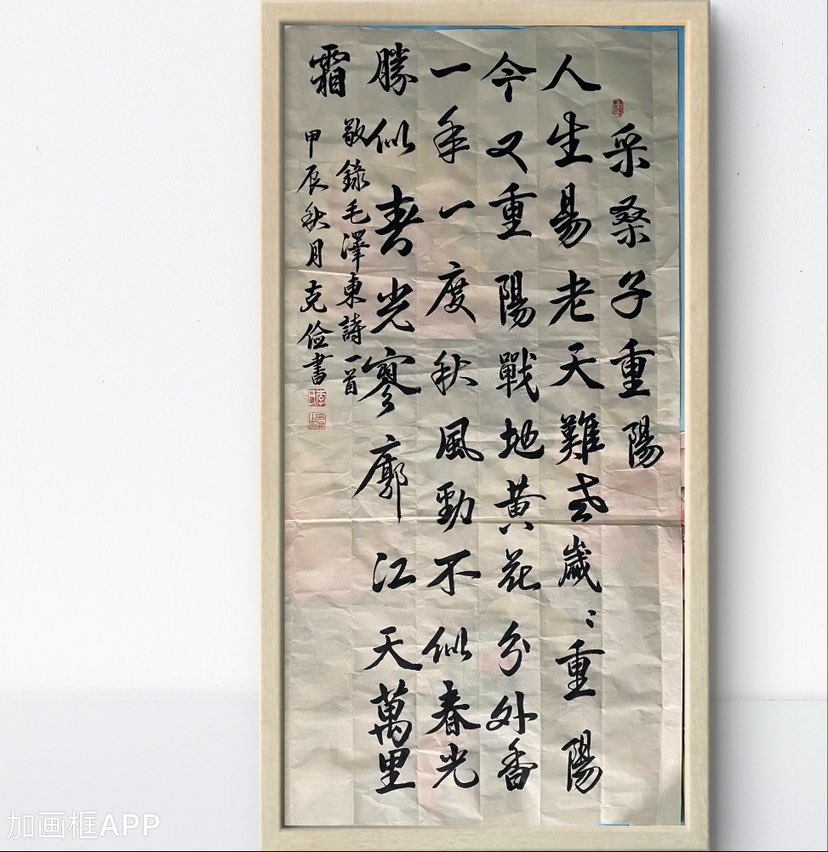 采桑子重陽
人生易老天難老歲〻重陽
今又重陽戰地黄花分外香
一年一度秋風勁不似春光
勝似春光寥廓江天萬里
霜
敬錄毛澤東詩一首
甲辰秋月克俭書
加画框APP